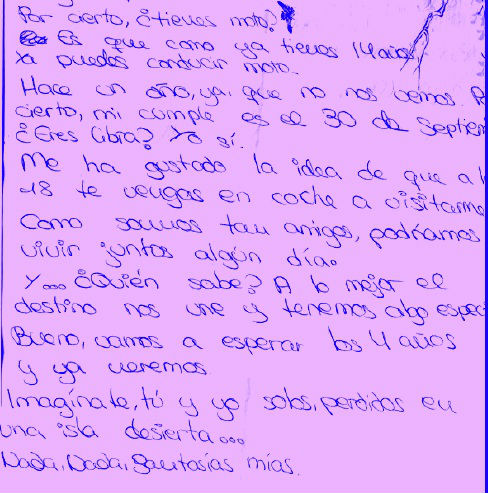 Por cierto, ¿tienes moto?
Es que como ya tienes 14 años,
ya puedes conducir moto.
Hace un año, ya, que no nos vemos. P
cierto, mi cumple es el 30 de Septiem
¿Eres libra? Yo sí.
Me ha gustado la idea de que a l
18 te vengas en coche a visitarme
Como somos tan amigos, podríamos
vivir juntos algún día.
Y... ¿Quién sabe? A lo mejor el
destino nos une y tenemos algo espec
Bueno, vamos a esperar los 4 años
y ya veremos.
Imagínate, tú y yo solos, perdidos en
una isla desierta...
Nada, Nada, fantasías mías.